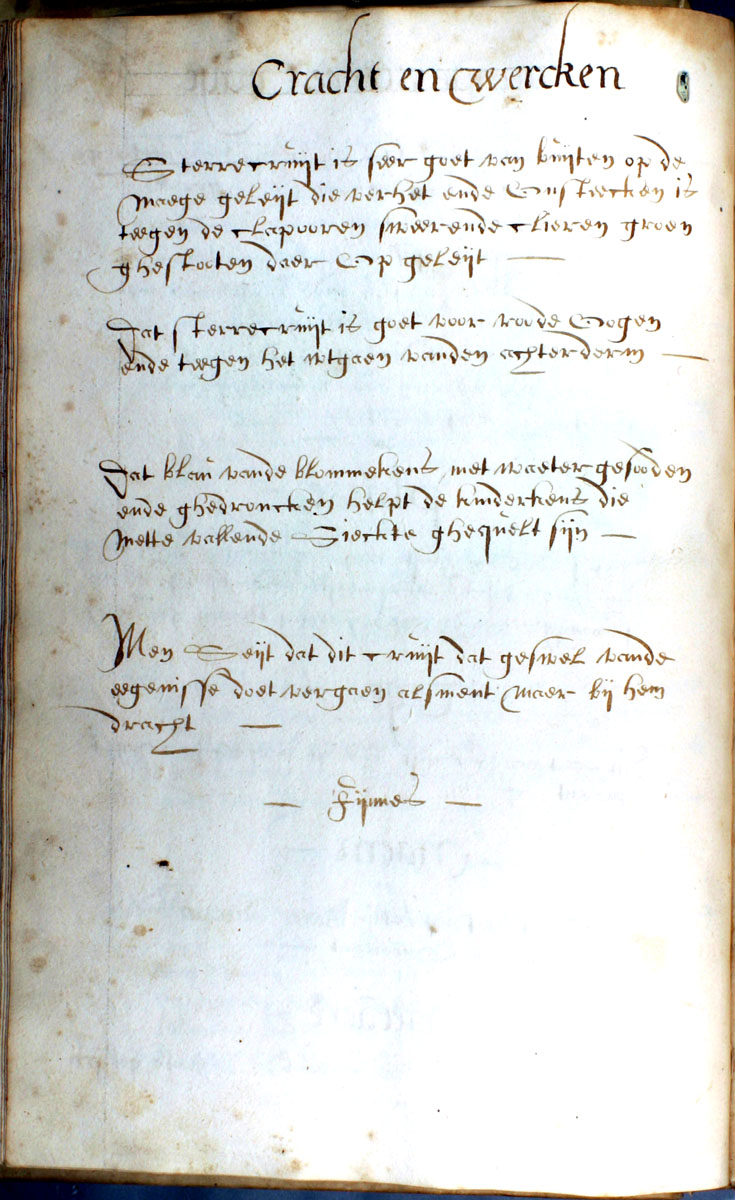 Cracht en Wercken
Sterrecruijt is seer goet van buijten op de
Maege geleijt die verhet ende Onsteecken is
teegen de clapooren sweerende clieren groen
ghestooten daer Op geleijt
Dat sterrecruijt is goet voor roode Oogen
ende teegen het wtgaen vanden achterderm
Dat blau vande blommekens met waeter gesooden
ende ghedroncken helpt de kinderkens die
Mette vallende Sieckte ghequelt sijn
Men Seijt dat dit cruijt dat geswel vande
eegenisse doet vergaen alsment Maer bij hem
dracht